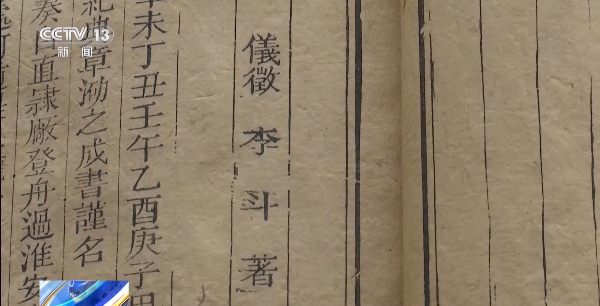 CCTV 13
新闻
儀徵 李斗 著
未丁丑壬午乙酉庚子
典章泐之成書謹名
直隸廠登舟過淮安